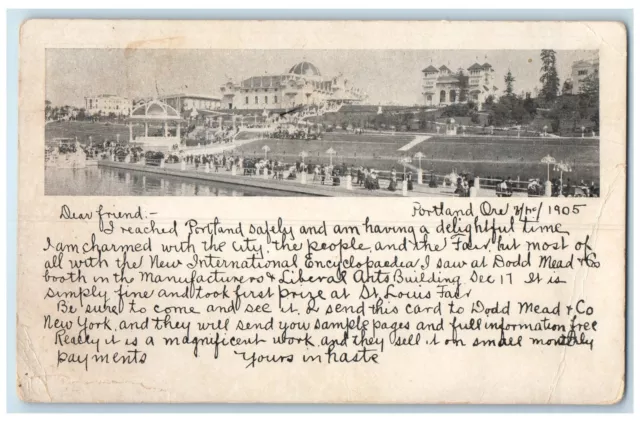 Dear friend.- Portland Ore /1905
I reached Portland safely and am having a delightful time
I am charmed with the City, the people, and the Fair, but most of
all with the New International Encyclopaedia, I saw at Dodd Mead & Co
booth in the Manufacturers & Liberal Arts Building Sec 17 It is
simply fine and took first prize at St Louis Fair
Be sure to come and see it, or send this card to Dodd Mead & Co
New York, and they will send you sample pages and full information free
Really it is a magnificent work, and they sell it on small monthly
payments Yours in haste